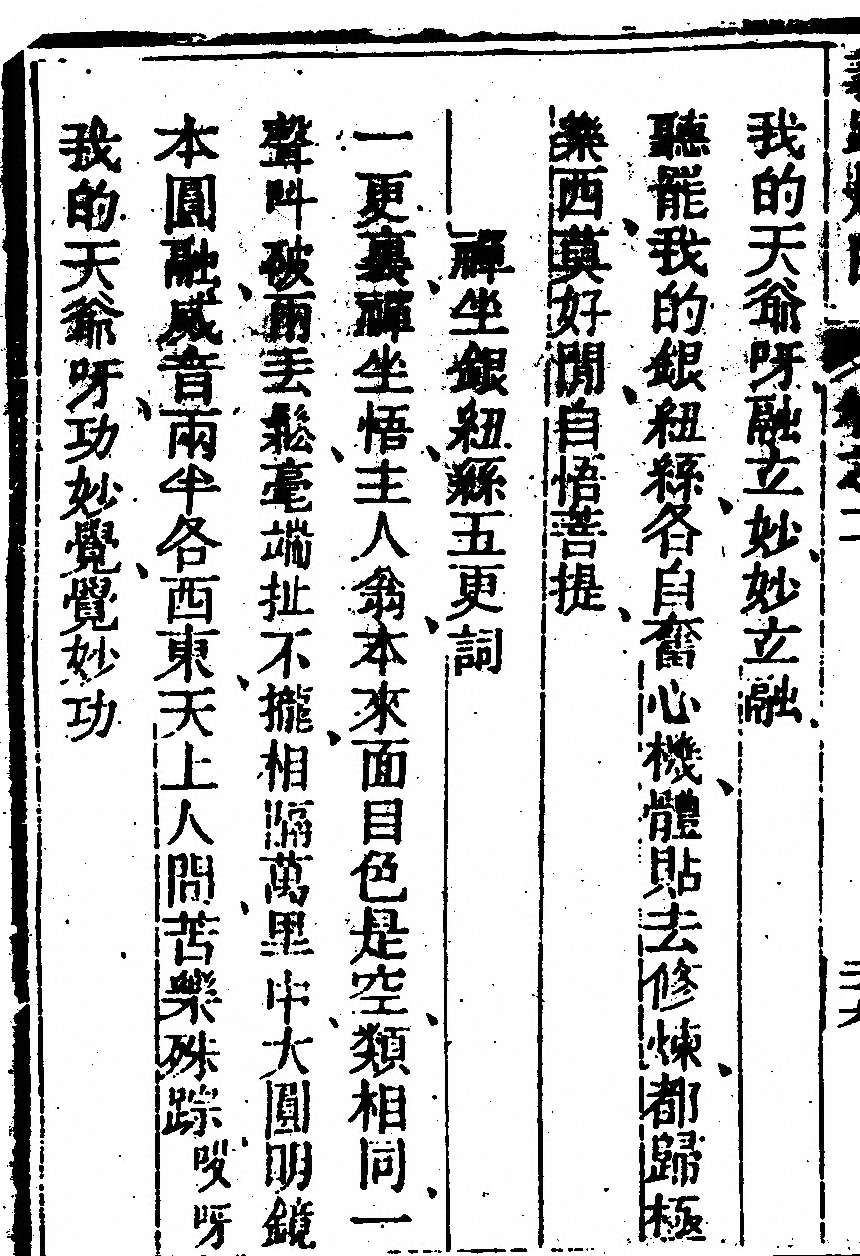 我的天爺呀融立妙妙立融
聽罷我的銀紐絲各自奮心機體貼去修煉都歸極
樂西莫好閒自悟菩提
禪坐銀紐絲五更詞
一更裏禪坐悟主人翁本來面目色是空類相同一
聲叫破兩丟鬆毫端扯不攏相隔萬里中大圓明鏡
本圓融威音兩半各西東天上人間苦樂殊踪哎呀
我的天爺呀功妙覺覺妙功